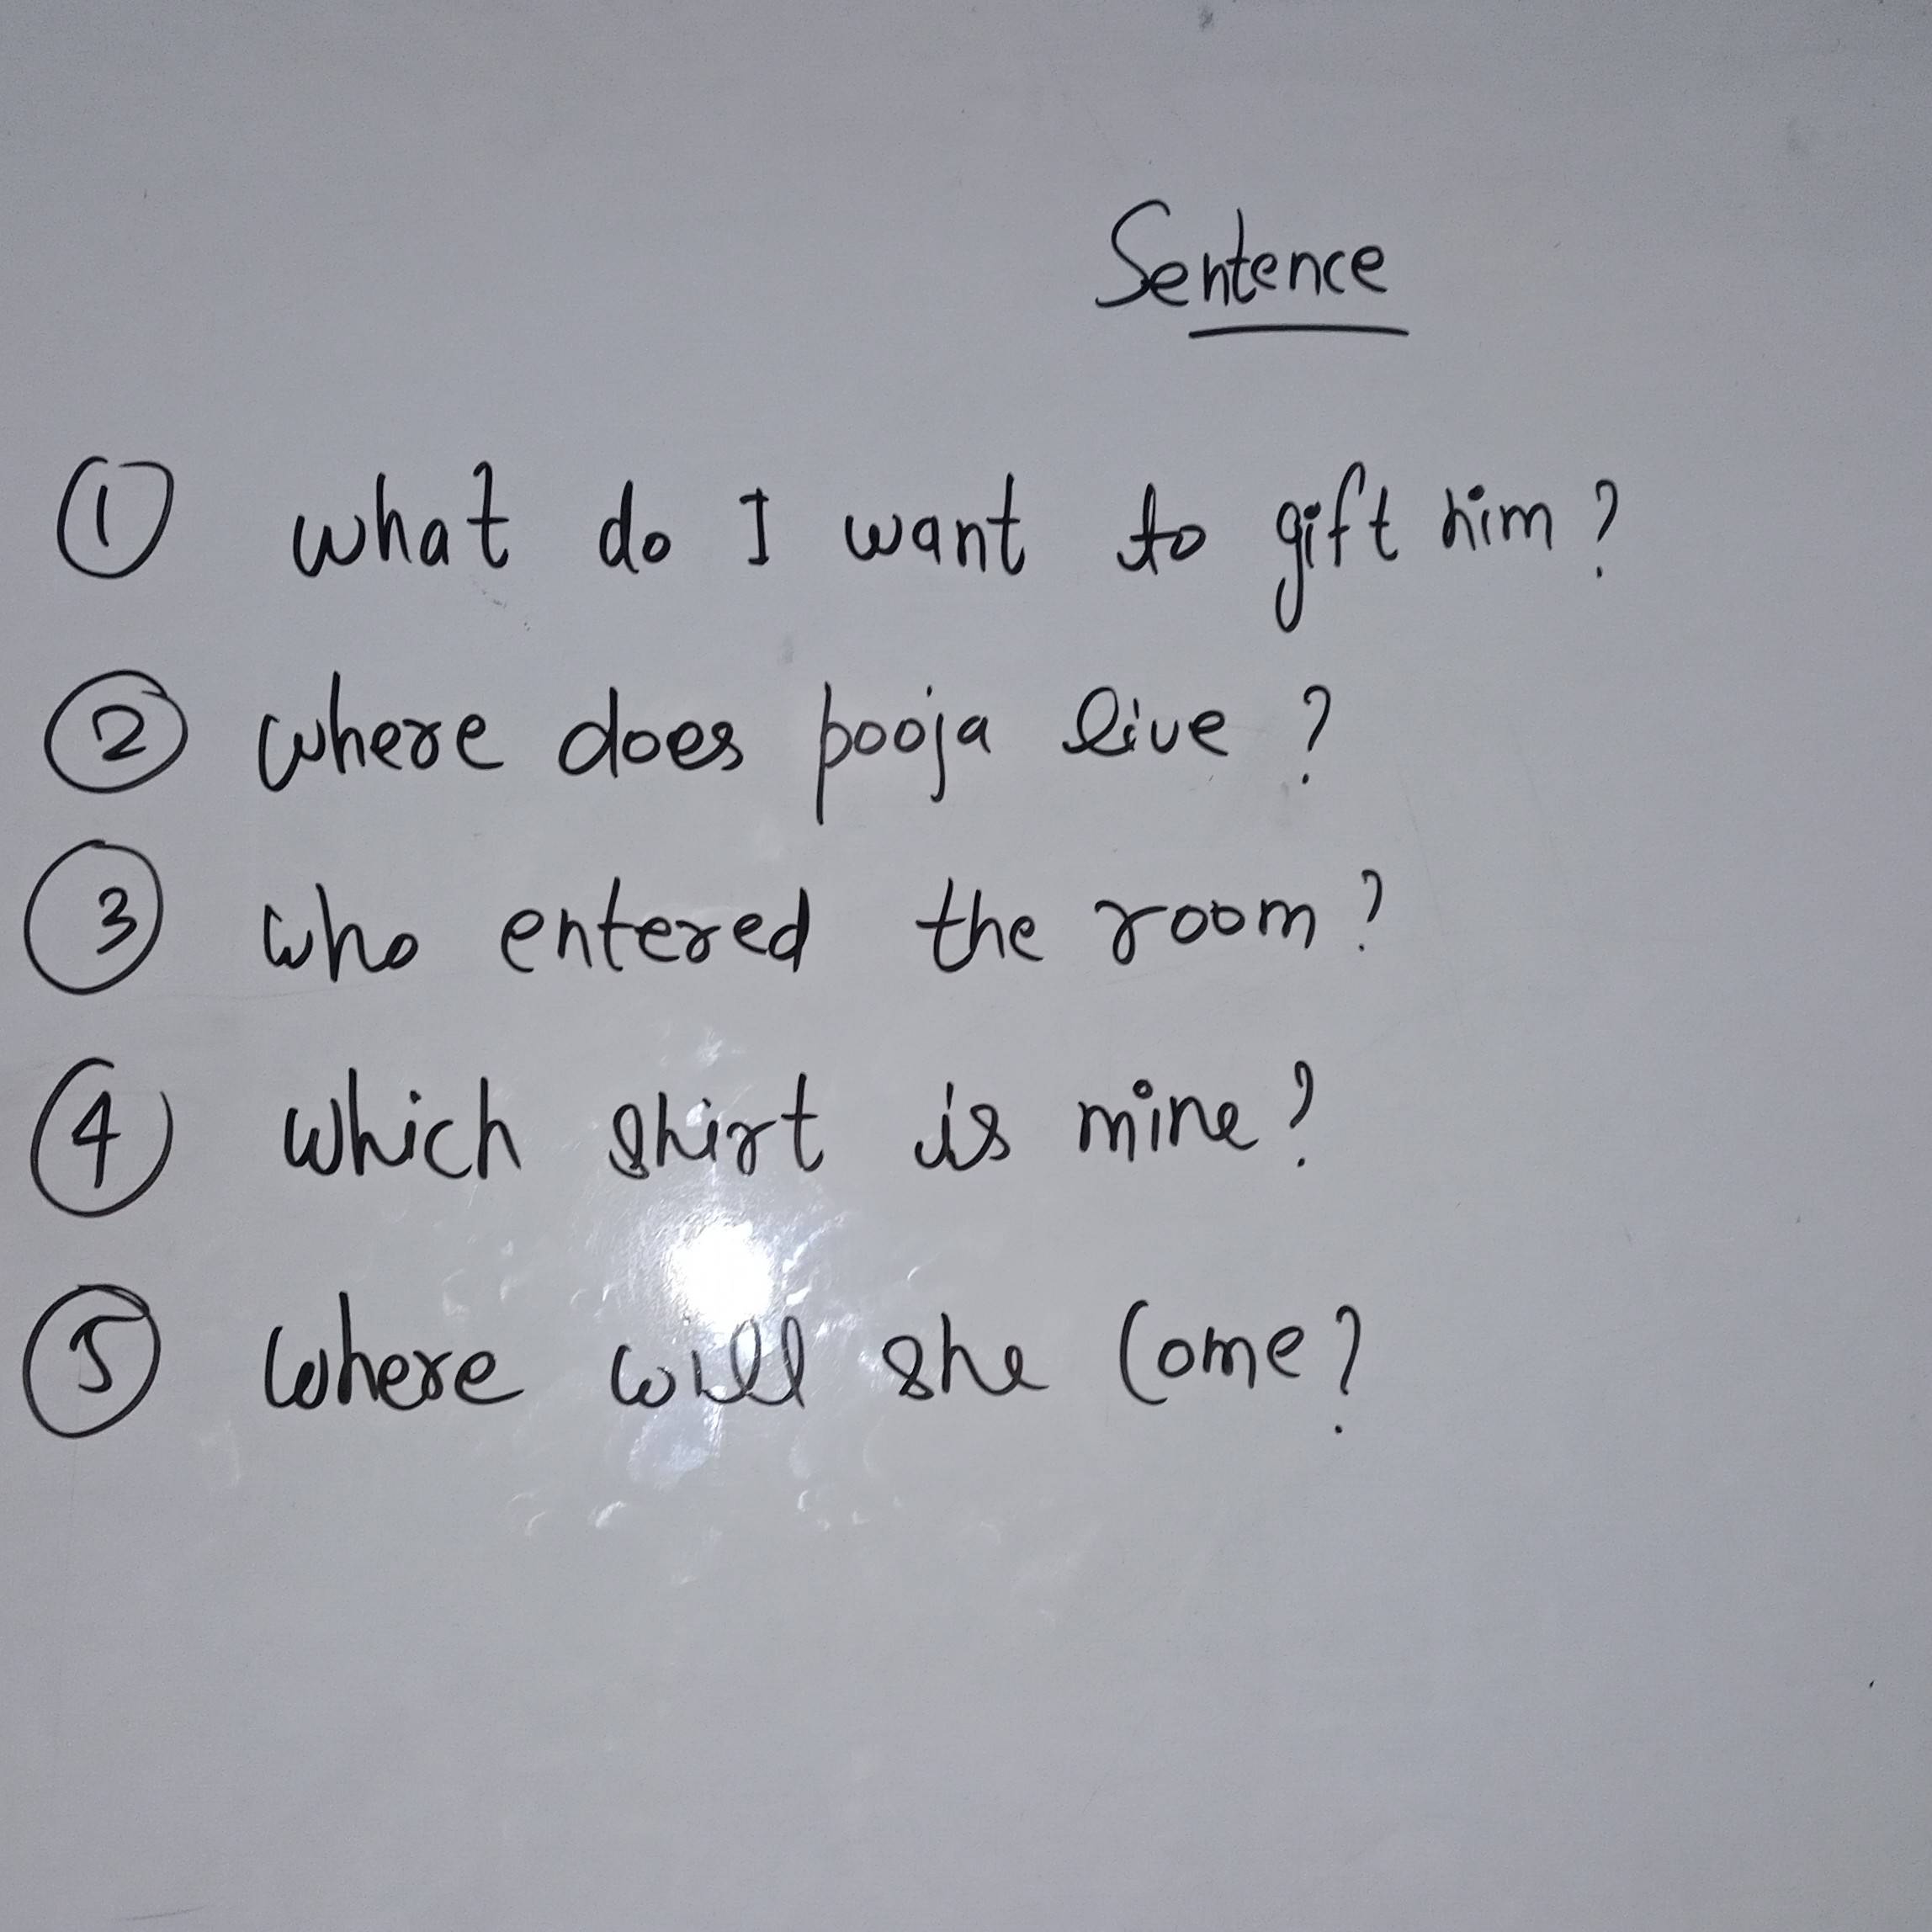 Sentence
① what do I want to gift him?
② where does pooja live?
③ who entered the room?
④ which shirt is mine?
⑤ where will she Come?